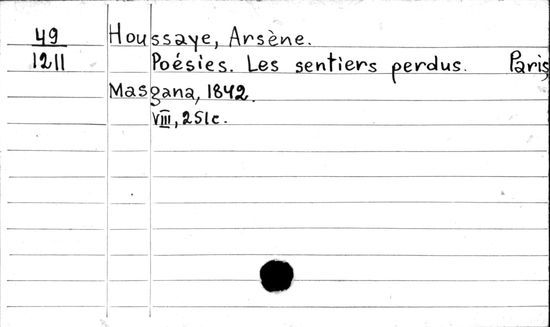 49 Houssaye, Arsène.
1211 Poésies. Les sentiers perdus. Paris
Masgana, 1842.
VIII, 251c.